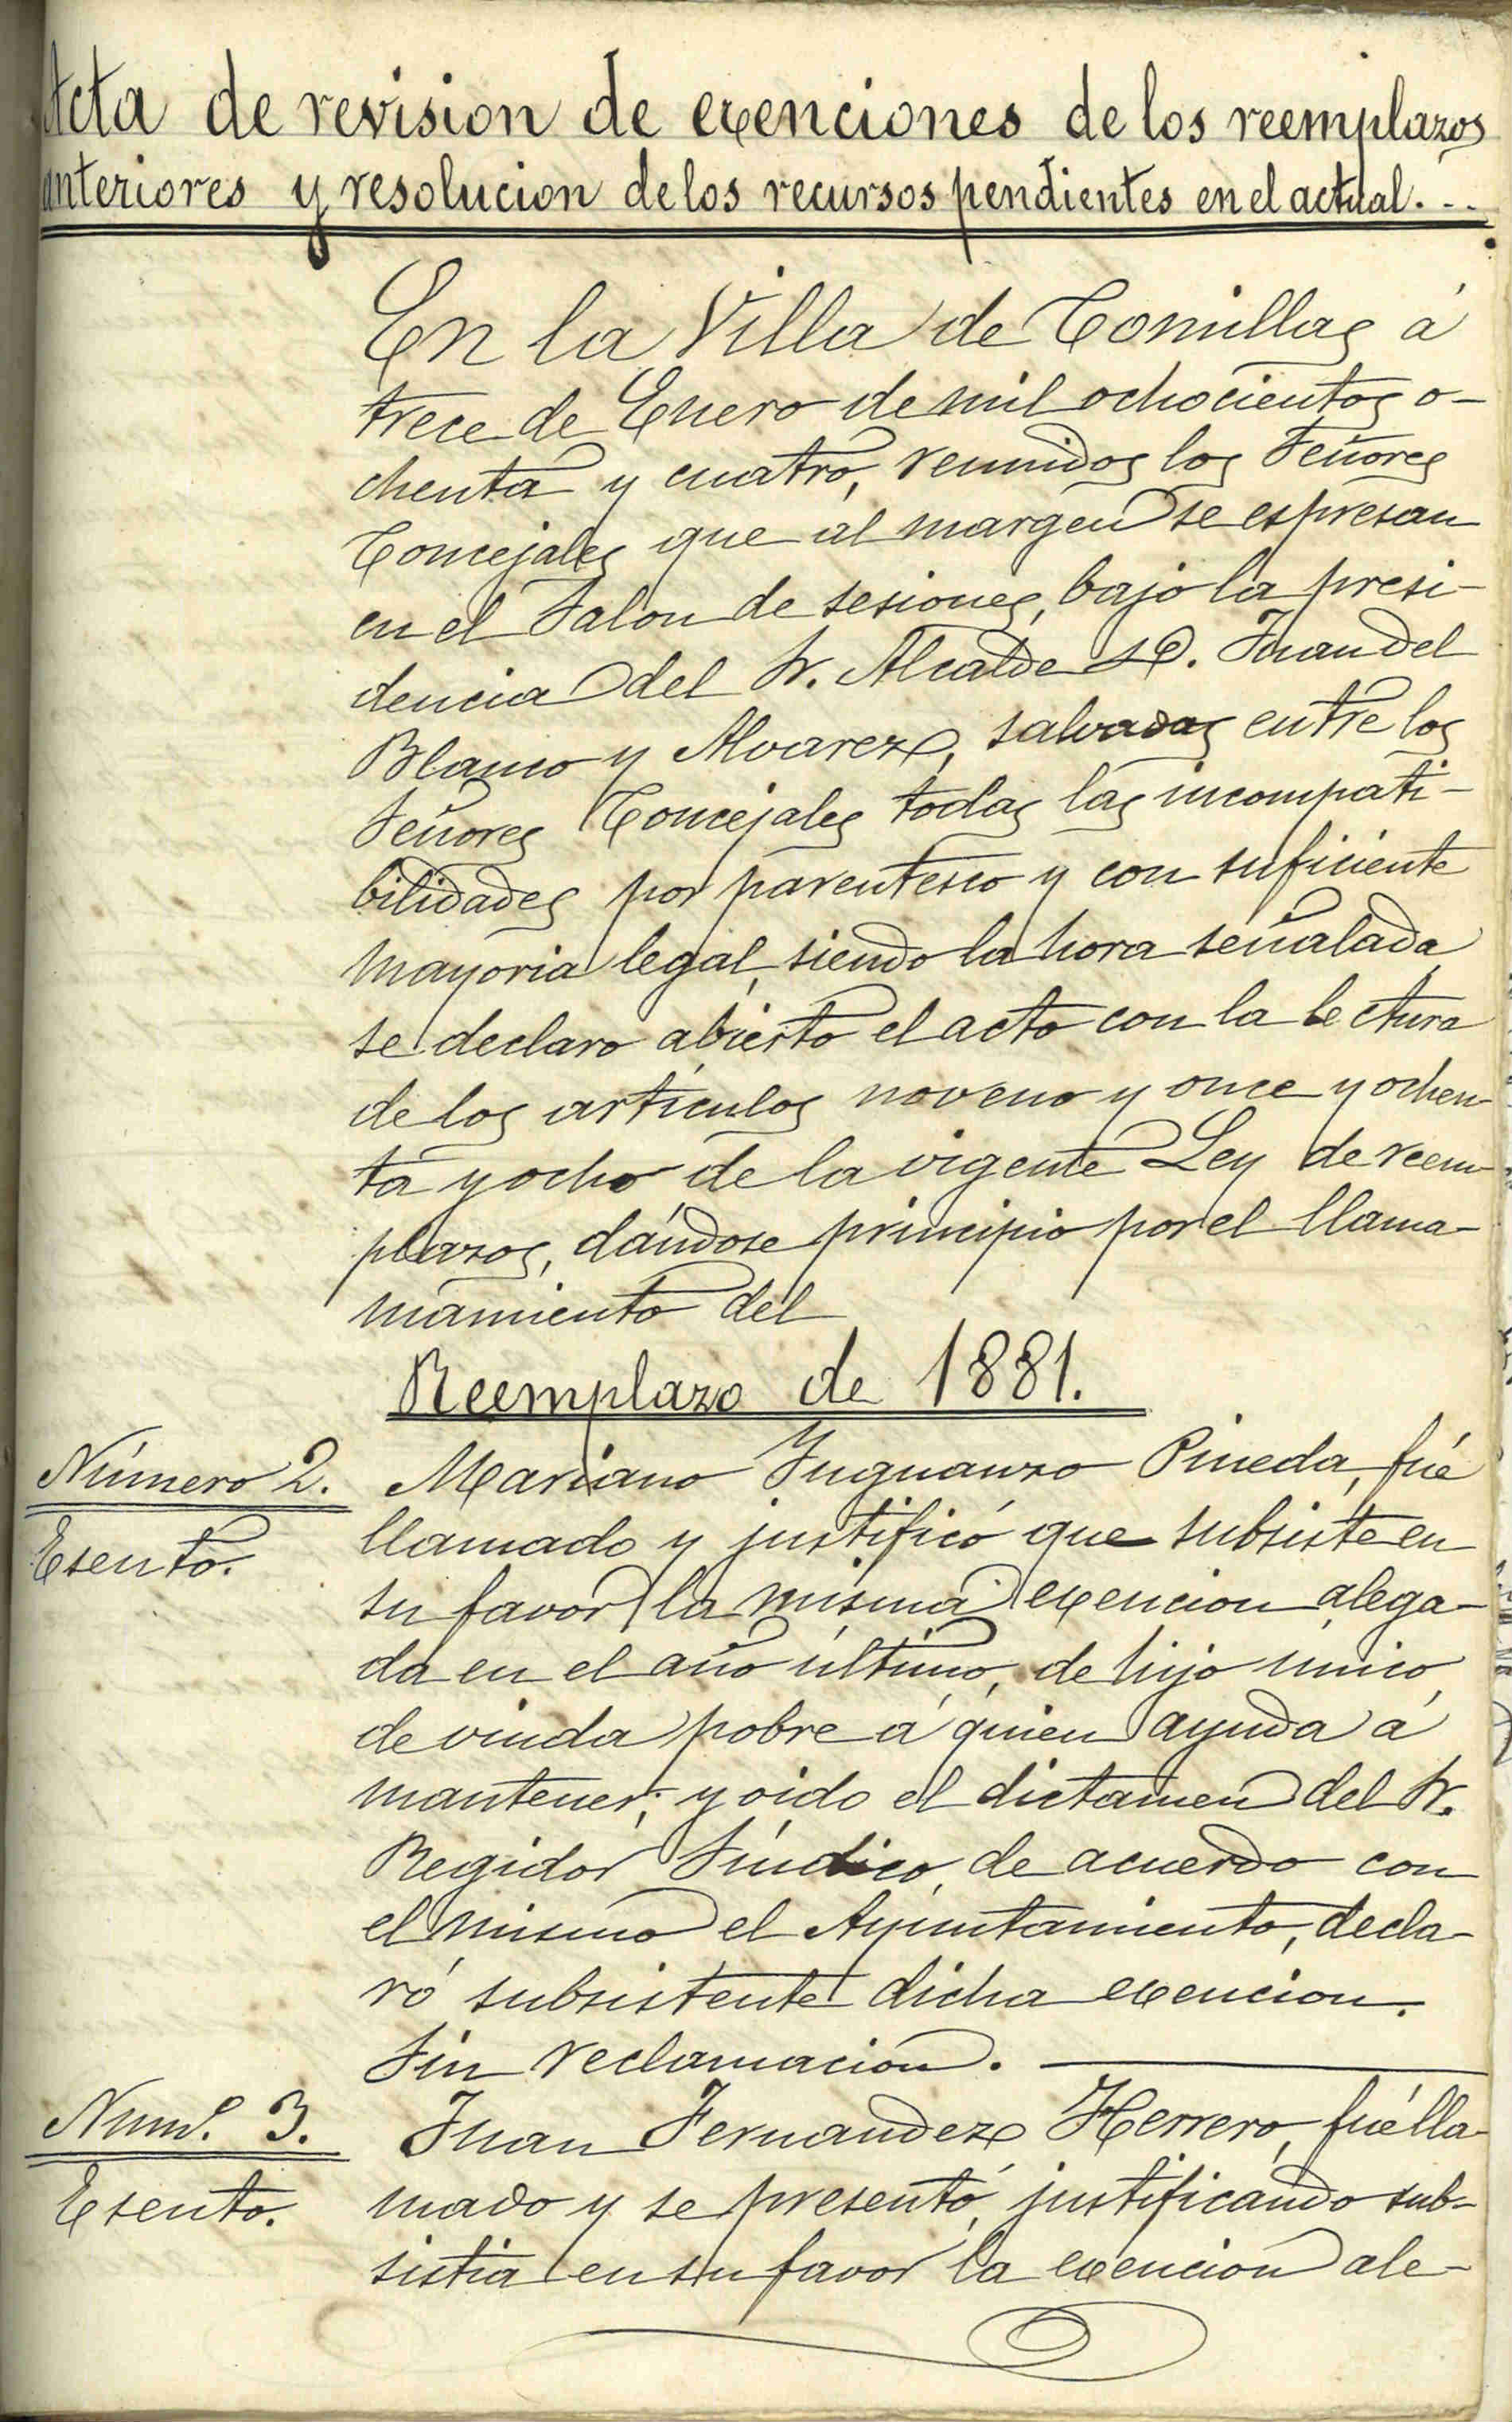 Acta de revision de exenciones de los reemplazos
anteriores y resolucion de los recursos pendientes en el actual. - -
En la Villa de Comillas á
trece de Enero de mil ochocientos o-
chenta y cuatro, reunidos los Señores
Concejales que al margen se espresan
en el Salon de sesiones, bajo la presi-
dencia del Sr. Alcalde D. Juan del
Blanco y Alvarez, salvadas entre los
Señores Concejales todas las incompati-
bilidades por parentesco y con suficiente
mayoria legal, siendo la hora señalada
se declaro abierto el acto con la lectura
de los artículos noveno y once y ochen-
ta y ocho de la vigente Ley de reem-
plazos, dándose principio por el llama-
mamiento del
Reemplazo de 1881.
Número 2.
Esento.
Mariano Inguanzo Pineda, fué
llamado y justificó que subsiste en
su favor la misma exencion alega-
da en el año último, de hijo único
de viuda pobre á quien ayuda á
mantener; y oido el dictamen del Sr.
Regidor Síndico, de acuerdo con
el mismo el Ayuntamiento, decla-
ró subsistente dicha exencion.
Sin reclamacion.
Num.º 3.
Esento.
Juan Fernandez Herrero, fué lla-
mado y se presentó, justificando sub-
sistia en su favor la exencion ale-